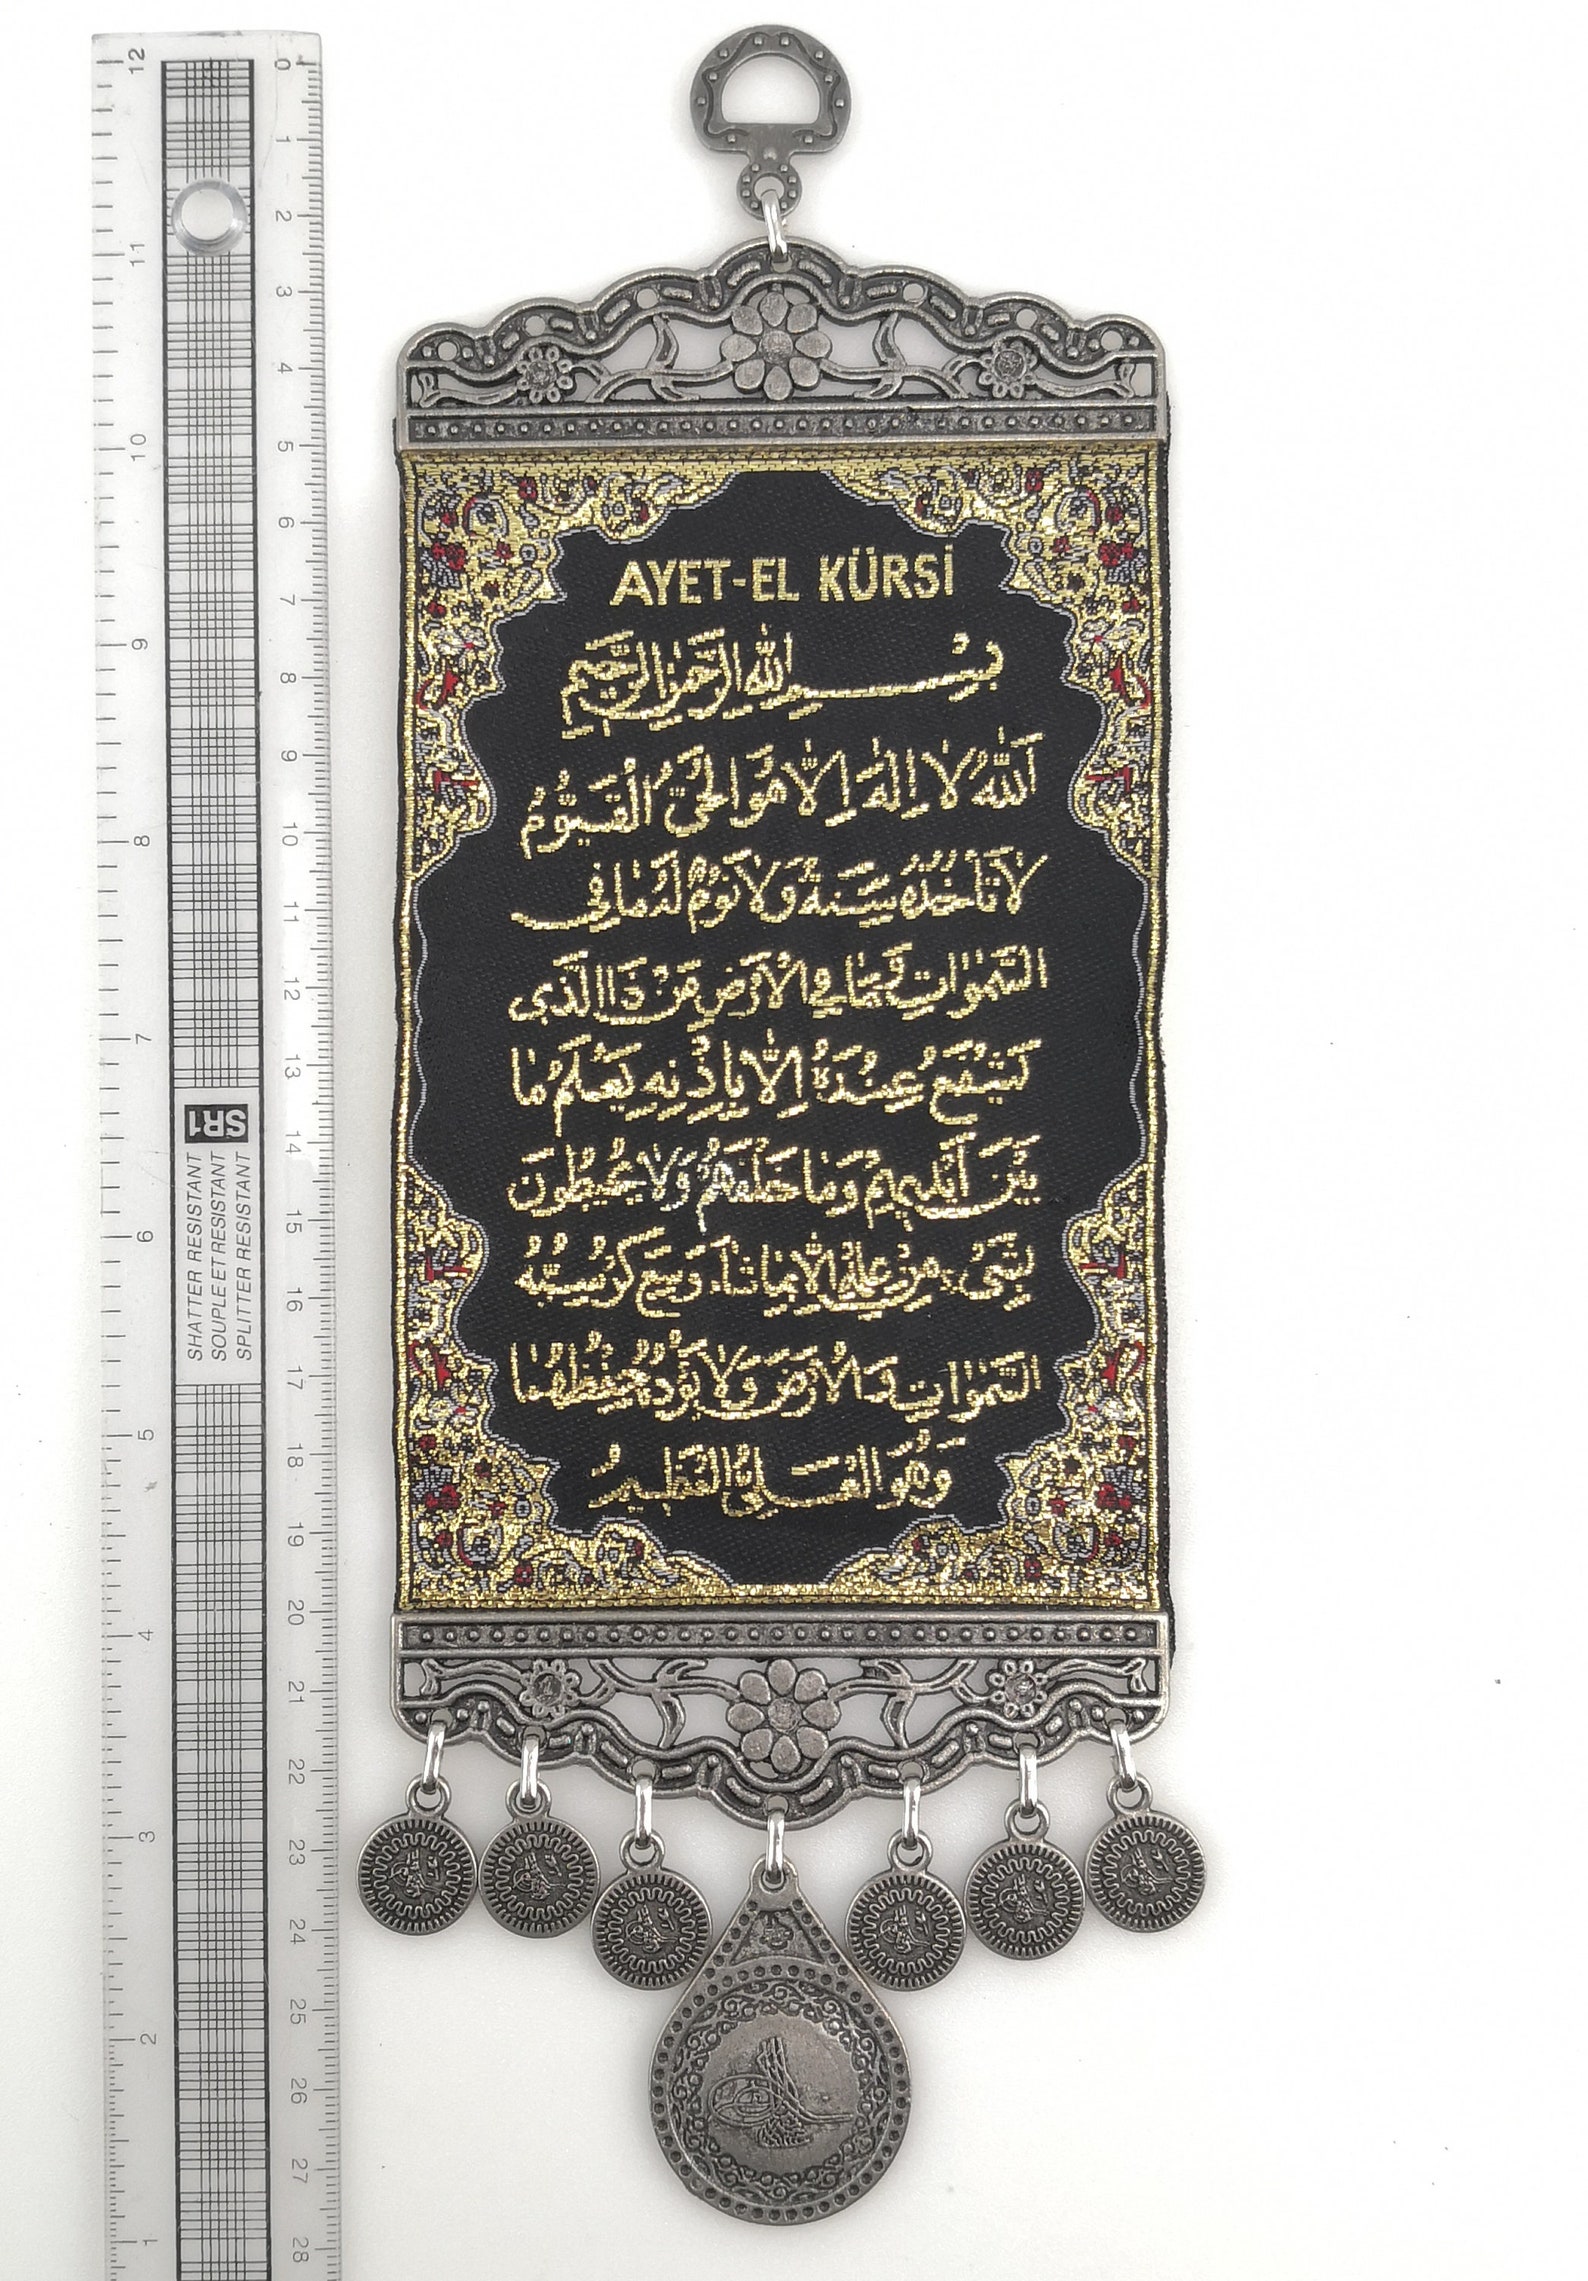 AYET-EL KÜRSİ
بِسْمِ اللهِ الرَّحْمٰنِ الرَّحِيمِ
اَللهُ لَا اِلٰهَ اِلَّا هُوَ الْحَىُّ الْقَيُّومُ
لَا تَأْخُذُهُ سِنَةٌ وَلَا نَوْمٌ لَهُ مَا فِى
السَّمٰوَاتِ وَمَا فِى الْاَرْضِ مَنْ ذَا الَّذِى
يَشْفَعُ عِنْدَهُ اِلَّا بِاِذْنِهِ يَعْلَمُ مَا
بَيْنَ اَيْدِيهِمْ وَمَا خَلْفَهُمْ وَلَا يُحِيطُونَ
بِشَىْءٍ مِنْ عِلْمِهِ اِلَّا بِمَا شَاءَ وَسِعَ كُرْسِيُّهُ
السَّمٰوَاتِ وَالْاَرْضَ وَلَا يَؤُدُهُ حِفْظُهُمَا
وَهُوَ الْعَلِىُّ الْعَظِيمُ
SR1
SHATTER RESISTANT
SOUPLE ET RESISTANT
SPLITTER RESISTANT
12 11 10 9 8 7 6 5 4 3 2 1
0 1 2 3 4 5 6 7 8 9 10 11 12 13 14 15 16 17 18 19 20 21 22 23 24 25 26 27 28